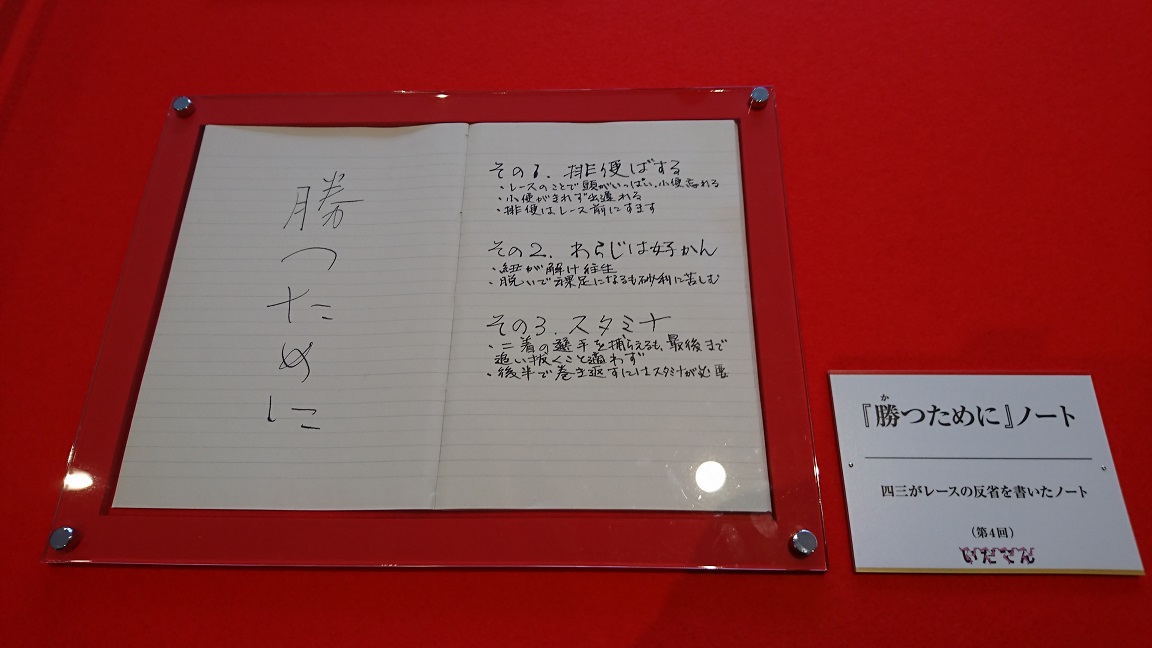 勝つために
その1. 排便ばする
・レースのことで頭がいっぱい、小便忘れる
・小便がきれず出遅れる
・排便はレース前にすます
その2. わらじは好かん
・紐が解け往生
・脱いで裸足になるも砂利に苦しむ
その3. スタミナ
・二着の選手を捕らえるも、最後まで
追い抜くこと適わず
・後半で巻き返すにはスタミナが必要
か
『勝つために』ノート
四三がレースの反省を書いたノート
(第4回)
いだてん